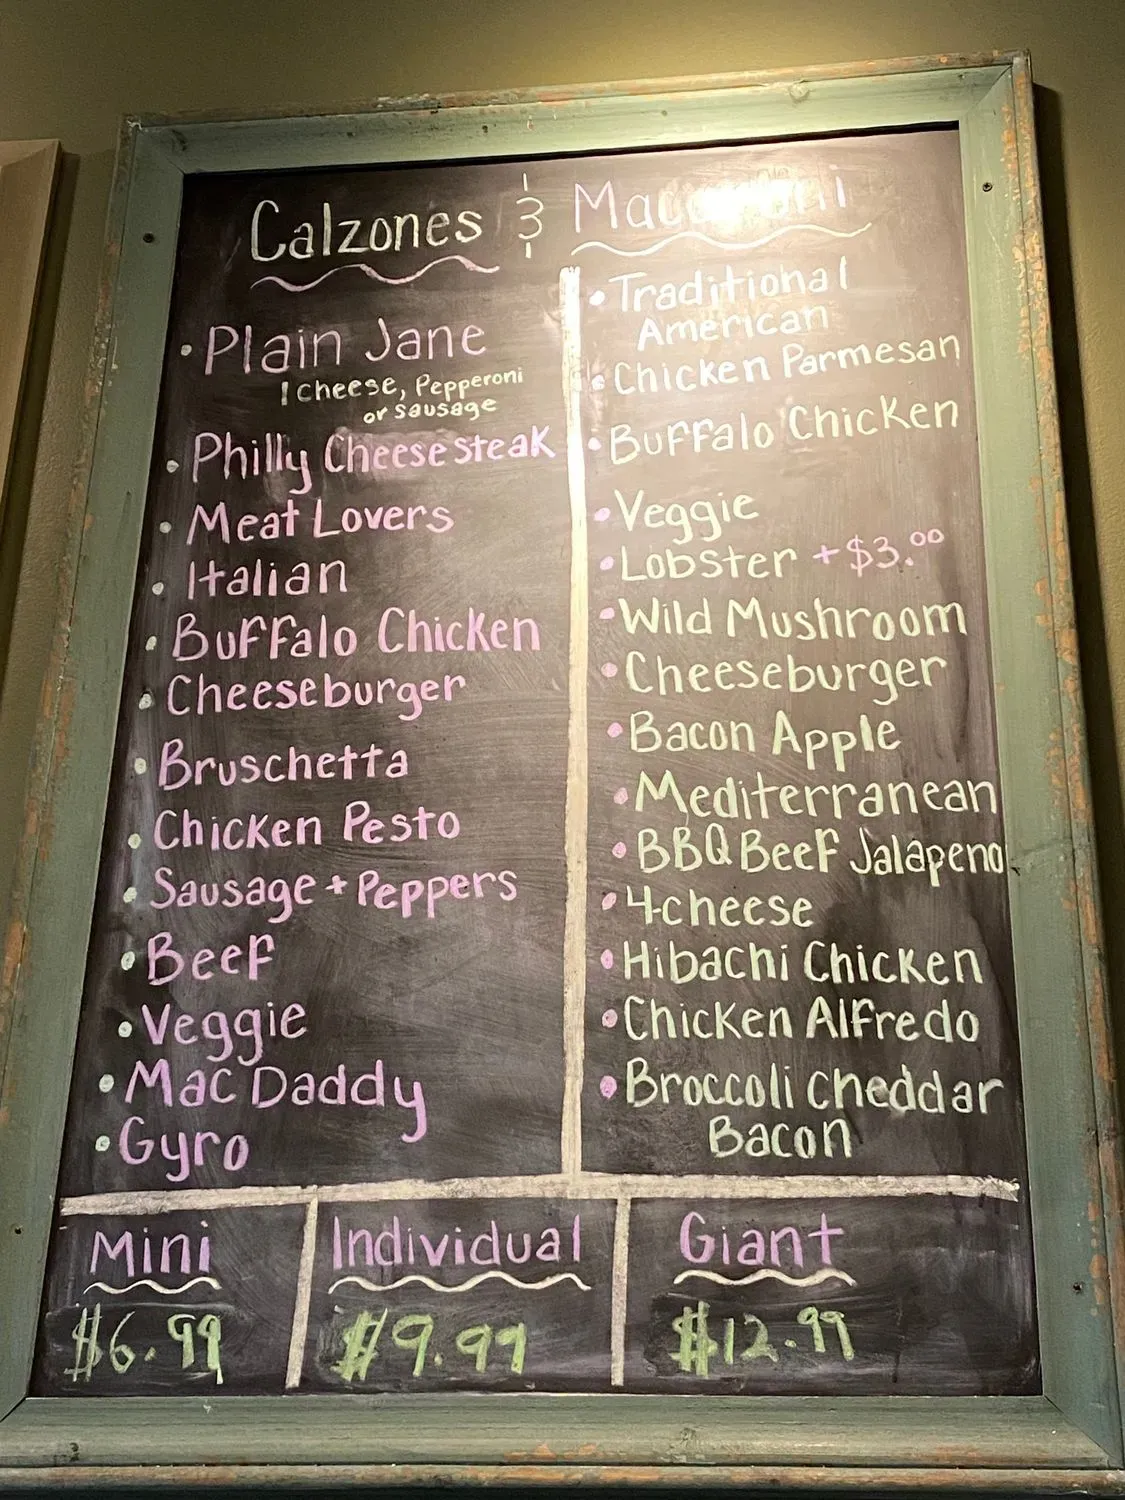 Calzones & Macaroni
• Plain Jane
1 Cheese, Pepperoni
or Sausage
• Philly Cheesesteak
• Meat Lovers
• Italian
• Buffalo Chicken
• Cheeseburger
• Bruschetta
• Chicken Pesto
• Sausage + Peppers
• Beef
• Veggie
• Mac Daddy
• Gyro
• Traditional
American
• Chicken Parmesan
• Buffalo Chicken
• Veggie
• Lobster + $3.00
• Wild Mushroom
• Cheeseburger
• Bacon Apple
• Mediterranean
• BBQ Beef Jalapeno
• 4-cheese
• Hibachi Chicken
• Chicken Alfredo
• Broccoli Cheddar
Bacon
Mini
$6.99
Individual
$9.99
Giant
$12.99